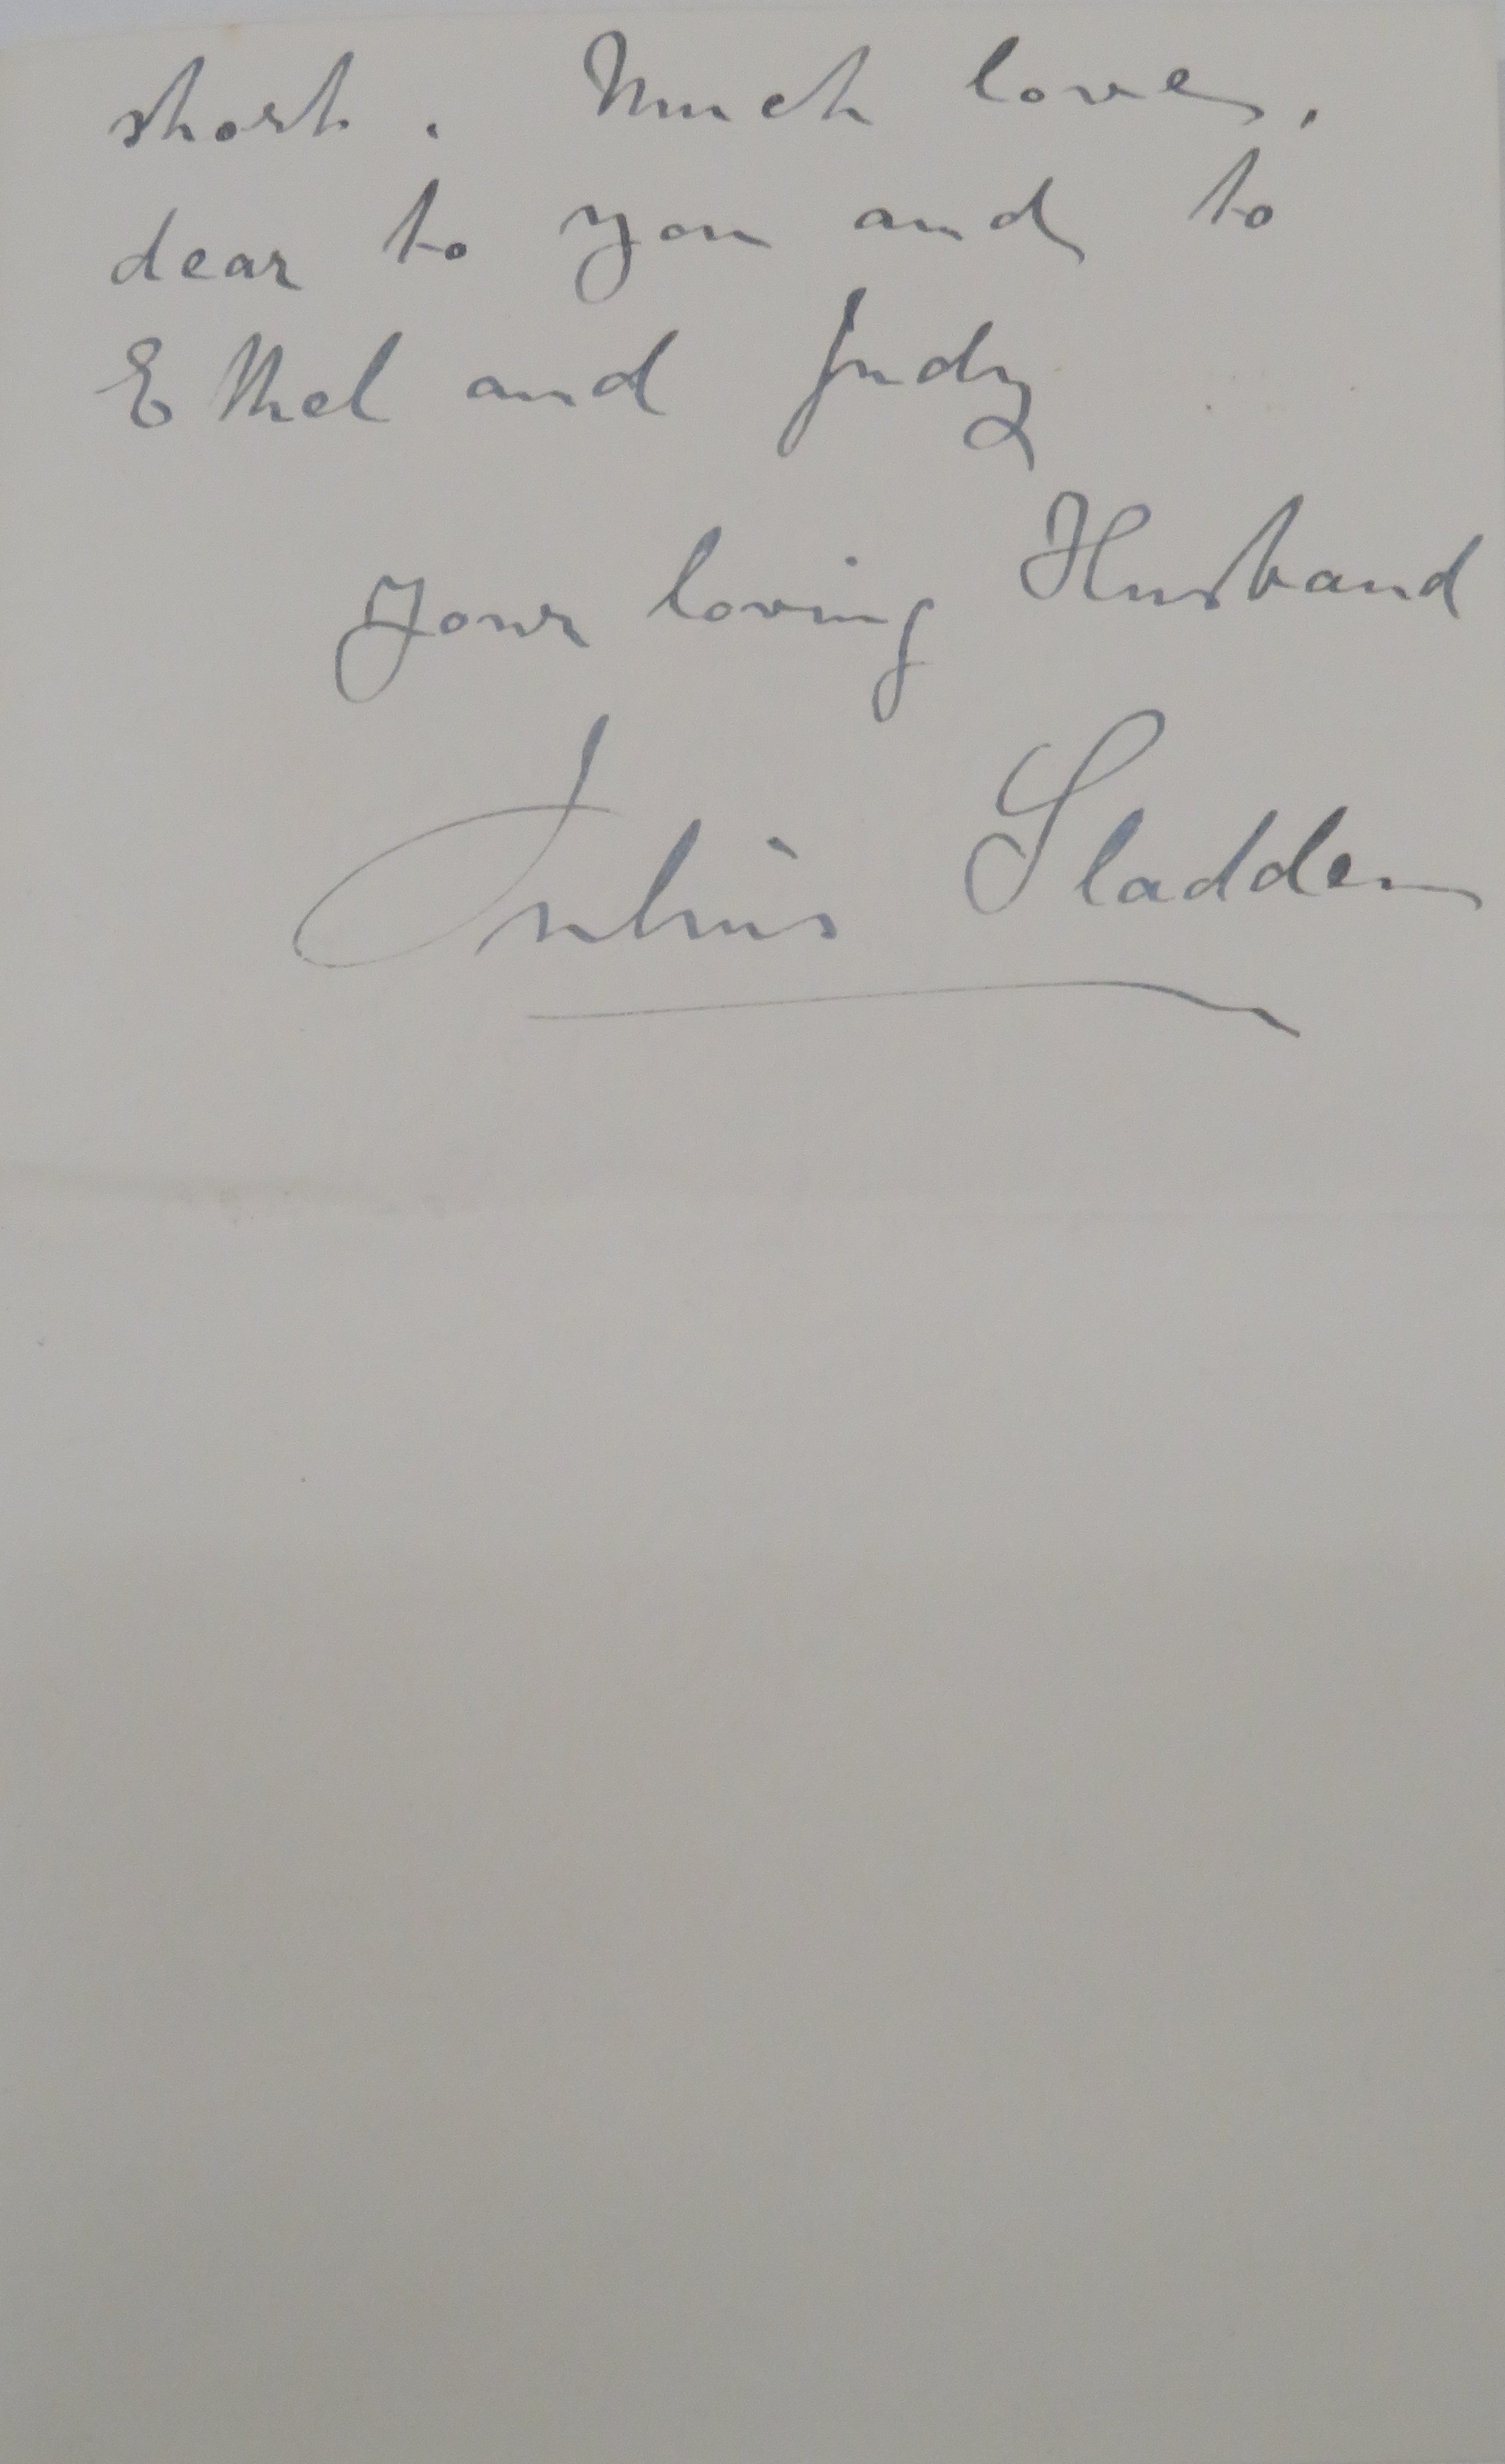 short. Much love,
dear to you and to
Ethel and Judy
Your loving Husband
Julius Sladden